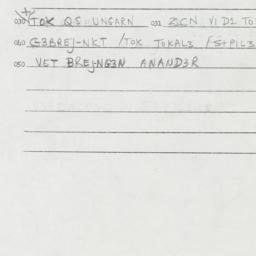 030 TOK QS UNGARN 031 ZCN VI D1 TO
040 G3BREJ-NKT / TOK TOKAL3 / S+PIL3
050 VET BREJ-NG3N ANAND3R